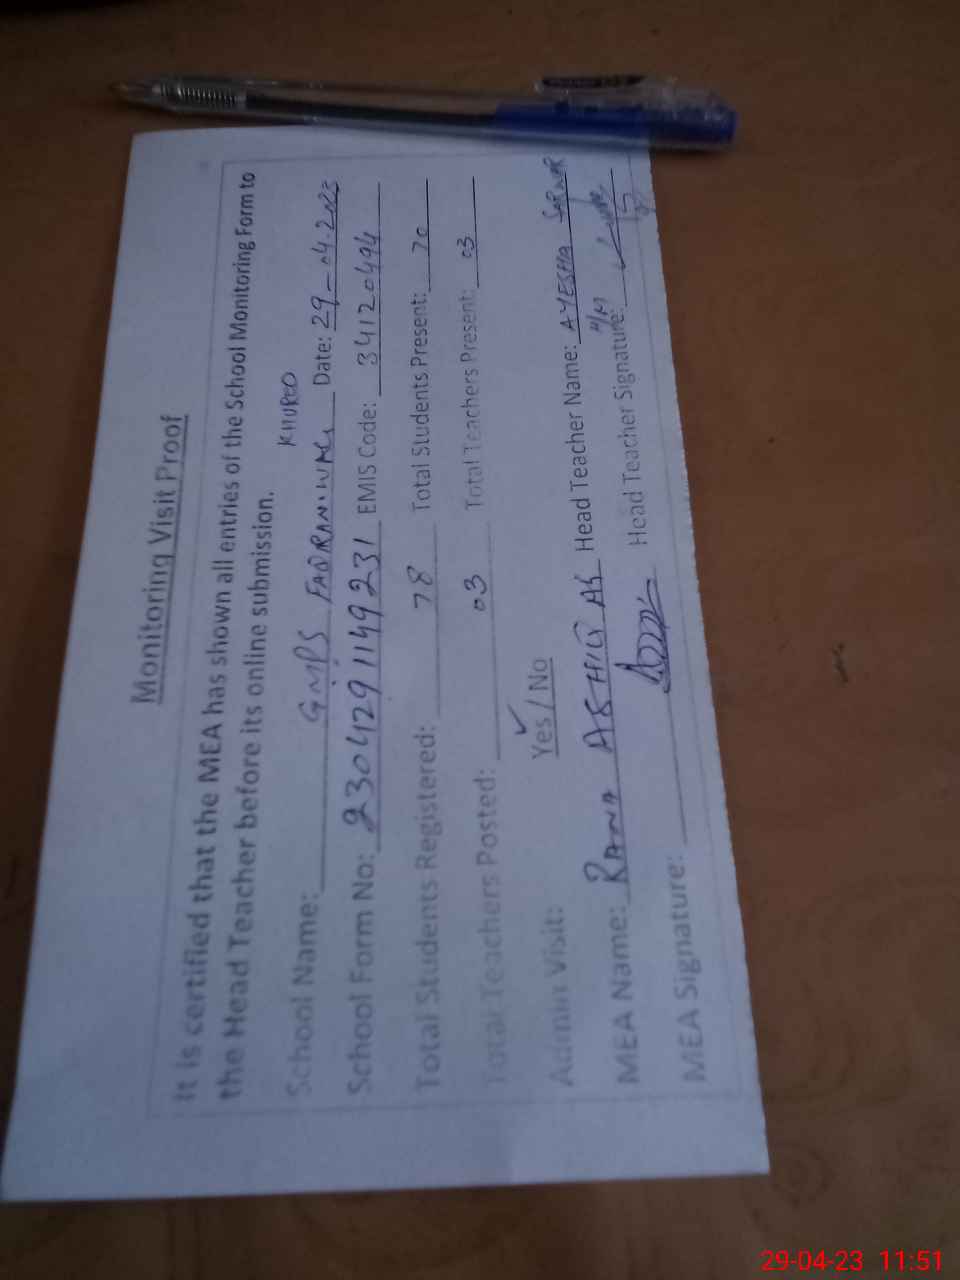 Monitoring Visit Proof
It is certified that the MEA has shown all entries of the School Monitoring Form to
the Head Teacher before its online submission.
KHURCD
School Name: GMPS Date: 29-04-2023
School Form No: 2304291149231 EMIS Code: 34120494
Total Students Registered: 78 Total Students Present: 70
Total Teachers Posted: 03 Total Teachers Present: 03
Admin Visit: Yes / No
MEA Name: RANA ASHIQ Ali Head Teacher Name: AYESHA SARWAR
H/M
MEA Signature: Head Teacher Signature:
29-04-23 11:51